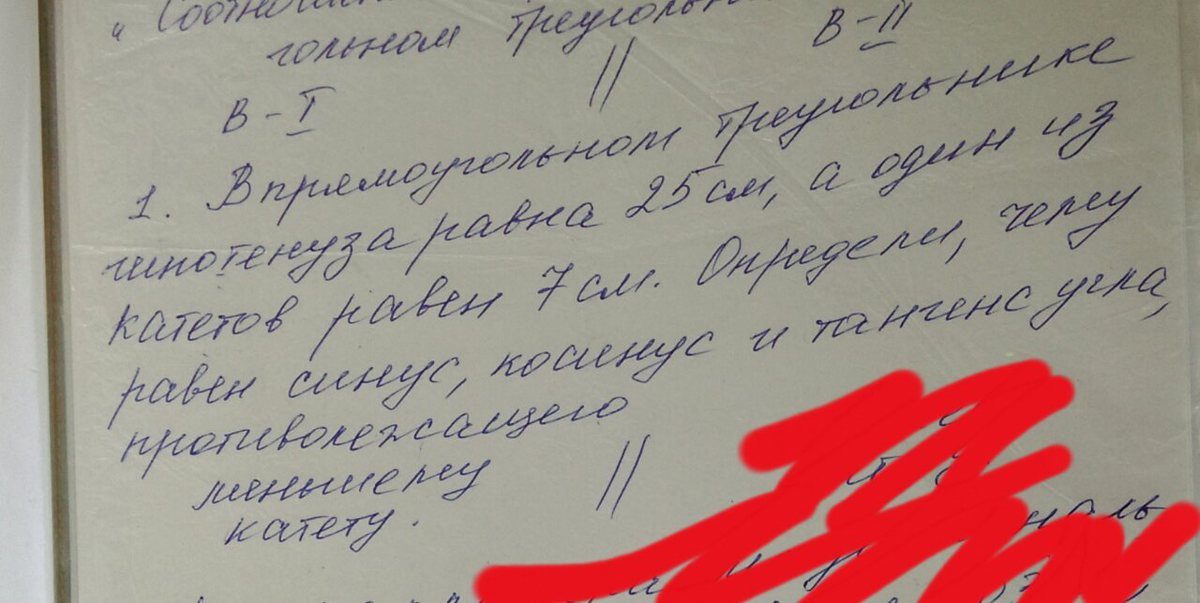 " Соотношен
гольном треугольн
В-I
В-II
1. В прямоугольном треугольнике
гипотенуза равна 25 см, а один из
катетов равен 7 см. Определи, чему
равен синус, косинус и тангенс угла,
противолежащего
меньшему
катету.